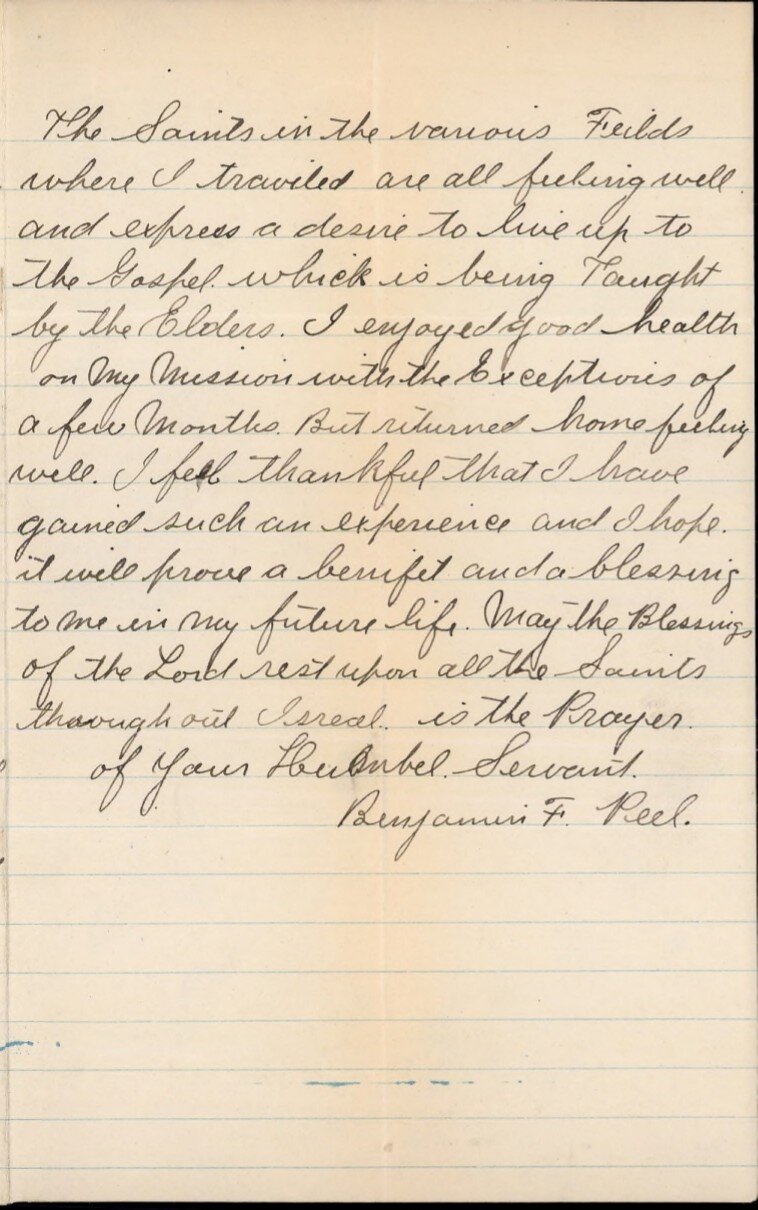 The Saints in the various Feilds
where I traviled are all feeling well.
and express a desire to live up to
the Gospel. which is being Taught
by the Elders. I enjoyed good health
on My Mission with the Exceptions of
a few Months. But returned home feeling
well. I feel thankful that I have
gained such an experience and I hope.
it will prove a benifit and a blessing
to me in my future life. May the Blessings
of the Lord rest upon all the Saints
throughout Isreal. is the Prayer.
of Your Humbel. Servant.
Benjamin F. Peel.